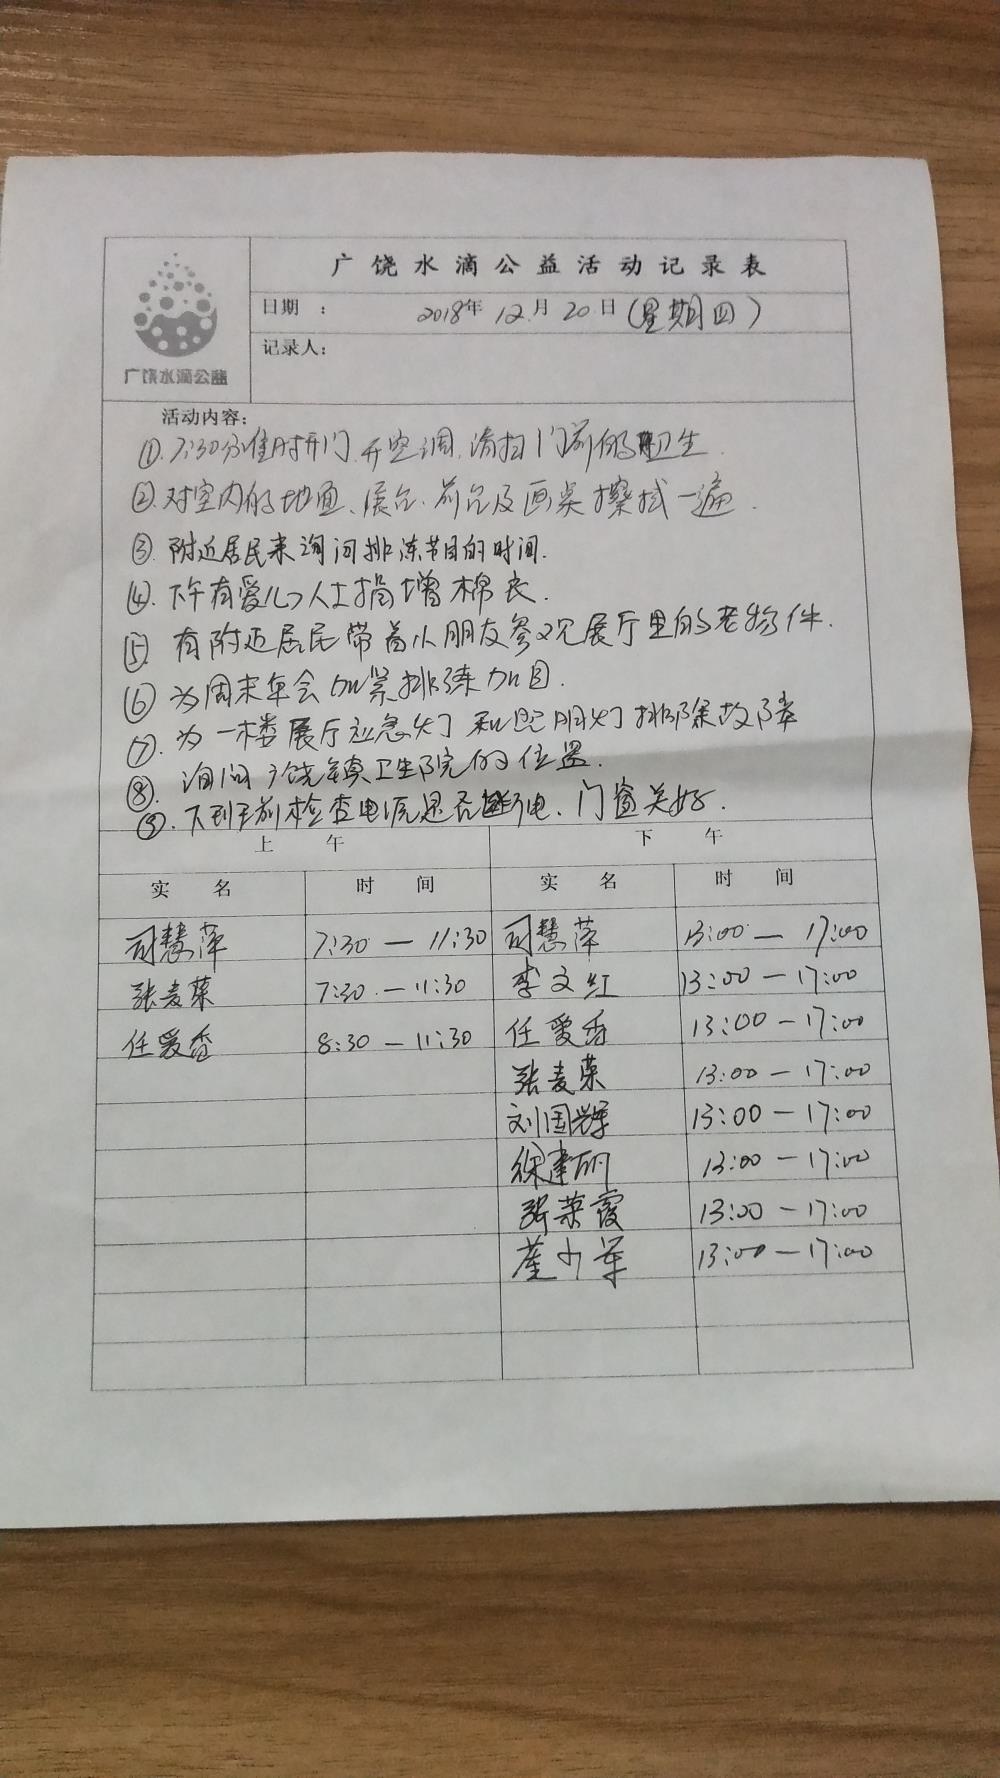 广饶水滴公益活动记录表
日期 ： 2018年 12月 20日(星期四)
广饶水滴公益
记录人：
活动内容：
①.7:30分准时开门.开空调.清扫门前的卫生.
②.对室内的地面、展台.前台及画桌擦拭一遍.
③.附近居民来询问排练节目的时间.
④.下午有爱心人士捐增棉衣.
⑤.有附近居民带着小朋友参观展厅里的老物件.
⑥为周末年会加紧排练加目.
⑦.为一楼展厅应急灯和照明灯排除故障
⑧.询问广饶镇卫生院的位置.
⑨.下班前检查电源是否断电、门窗关好.
上 午 下 午
实 名 时 间 实 名 时 间
司慧萍 7:30 — 11:30 司慧萍 13:00 — 17:00
张麦荣 7:30 — 11:30 李文红 13:00 — 17:00
任爱香 8:30 — 11:30 任爱香 13:00 — 17:00
张麦荣 13:00 — 17:00
刘国辉 13:00 — 17:00
徐建丽 13:00 — 17:00
张荣霞 13:00 — 17:00
13:00 — 17:00